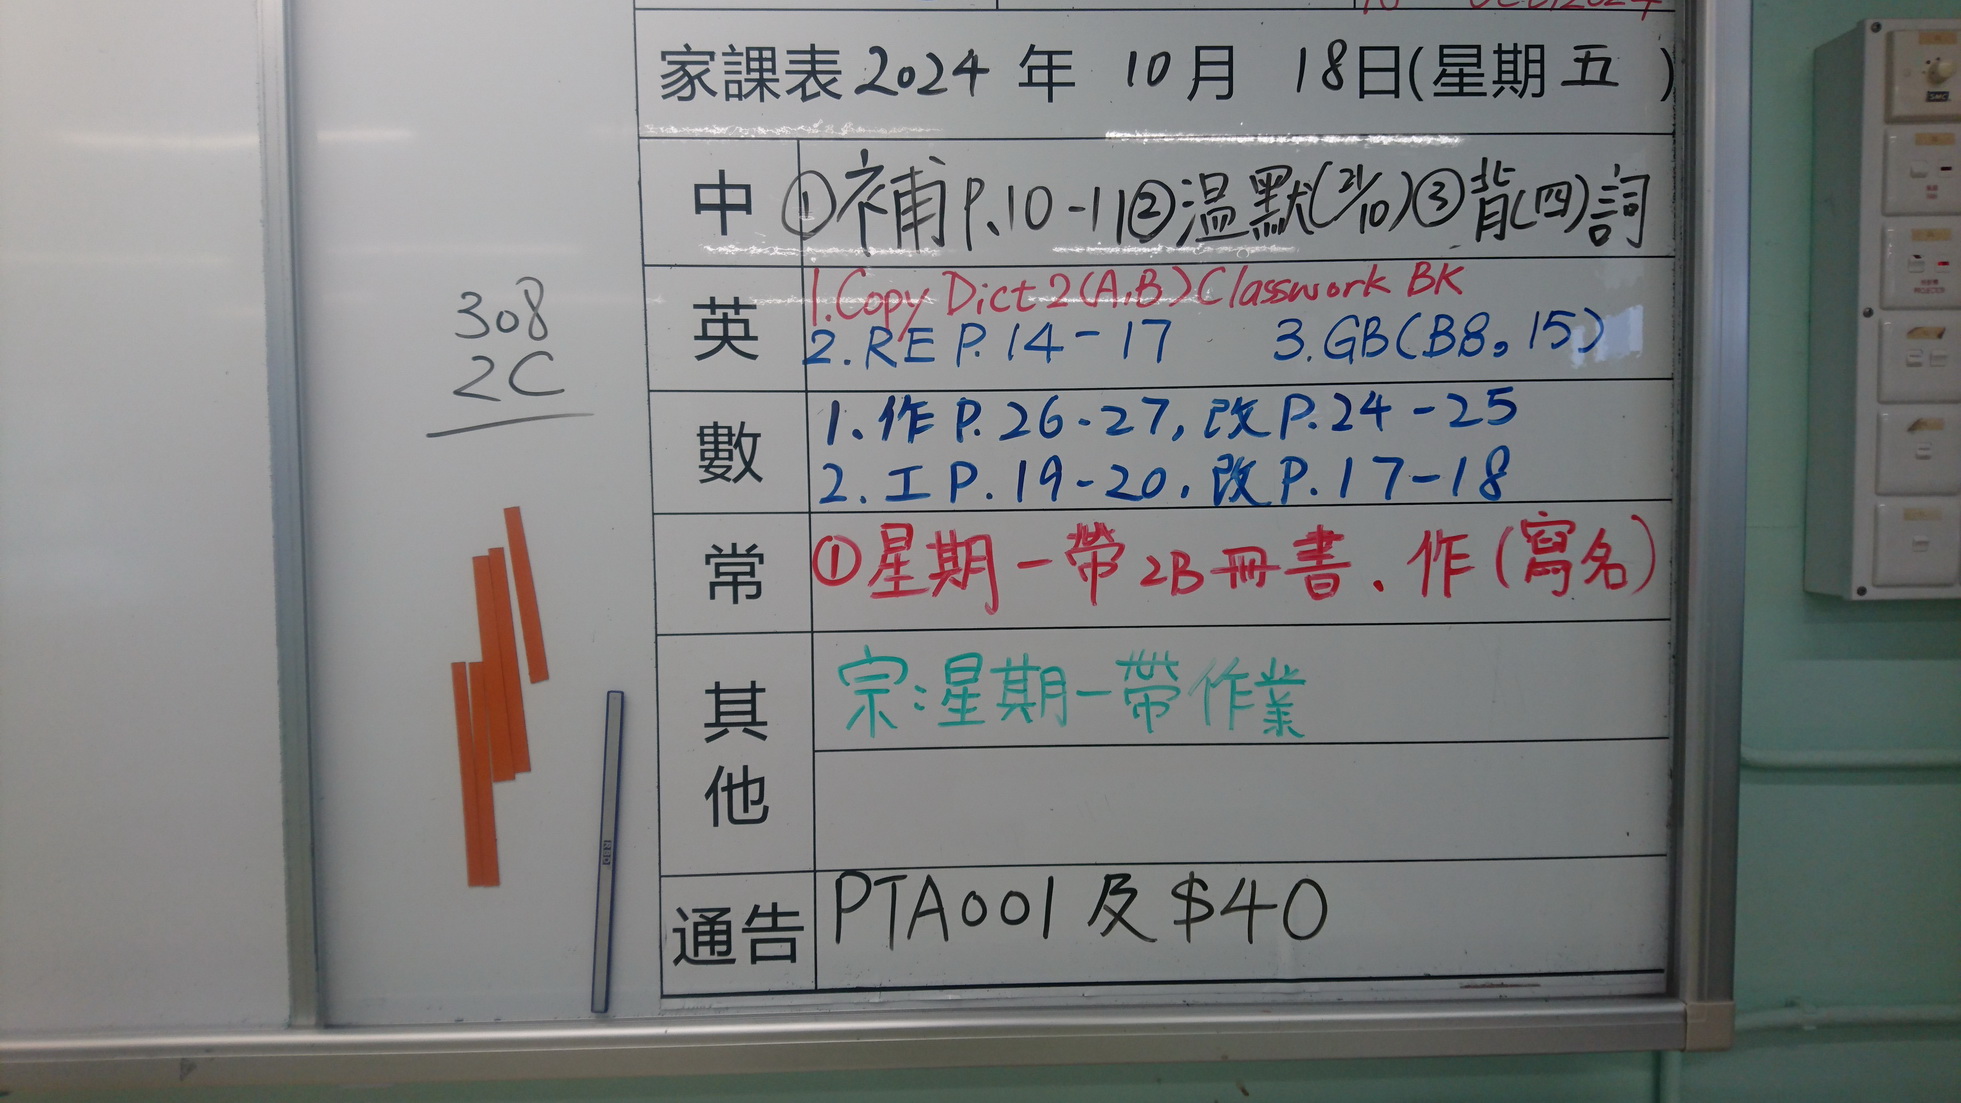 家課表 2024 年 10 月 18 日(星期 五 )
中 ①補P.10-11②溫默(21/10)③背(四)詞
英 1.Copy Dict 2(A,B) Classwork BK
2. RE P.14-17 3. GB(B8。15)
數 1. 作 P.26-27, 改 P.24-25
2. 工 P.19-20, 改 P.17-18
常 ①星期一帶2B冊書、作(寫名)
其他 宗:星期一帶作業
通告 PTA001 及 $40
308
2C